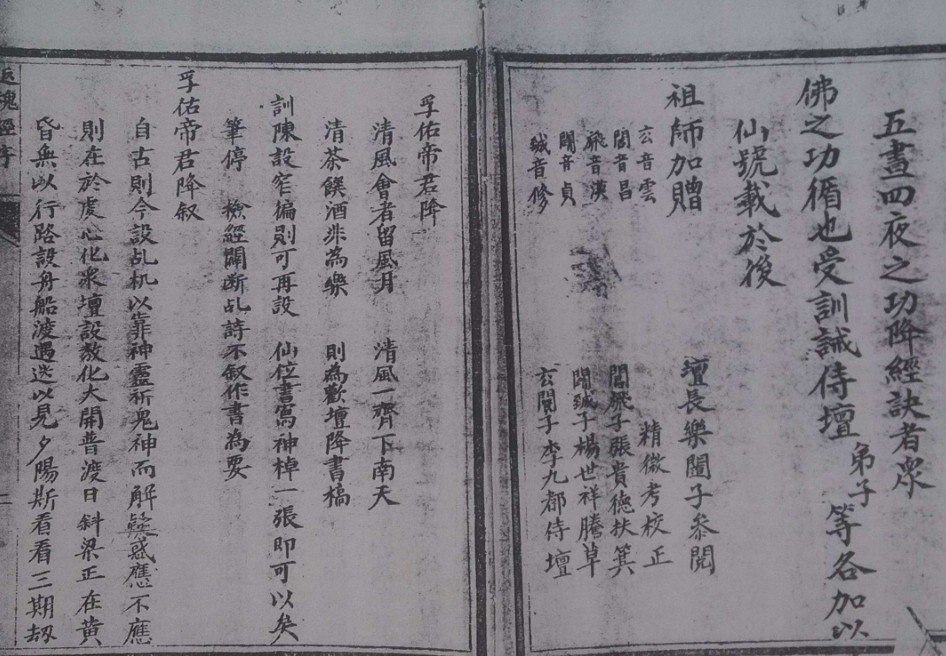 五晝四夜之功降經訣者眾
佛之功循也受訓誡侍壇弟子等各加以
仙號載於後
祖師加贈　壇長樂闡子參閱
玄音雲　精微考校正
闊音昌　闊飛子張貴德扶箕
飛音漢　闊誠子楊世祥騰草
闊音貞　玄闡子李九都侍壇
誠音修
孚佑帝君降
清風會者留風月　清風一齊下南天
清茶饌酒非為樂　則為歡壇降書稿
訓陳設窄偏則可再設　仙位書寫神棹一張即可以矣
筆停　檢經闡斷乩詩不叙作書為要
孚佑帝君降叙
自古則今設乩机以靠神靈祈鬼神而解疑惑應不應
則在於虔心化眾壇設教化大開普渡日斜梁正在黃
昏無以行路設舟船渡過迷以見夕陽斯看看三期劫
返魂經序
一